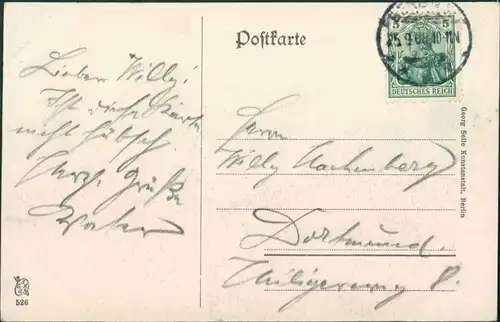 Postkarte
5 5
25.9.08.10-11N
DEUTSCHES REICH
Lieber Willy!
Ist diese Karte
nicht hübsch
Herzl. Grüße
Herrn
Willy Hachenberg
Dortmund.
Heiligerweg 8.
Georg Selle Kunstanstalt, Berlin
526